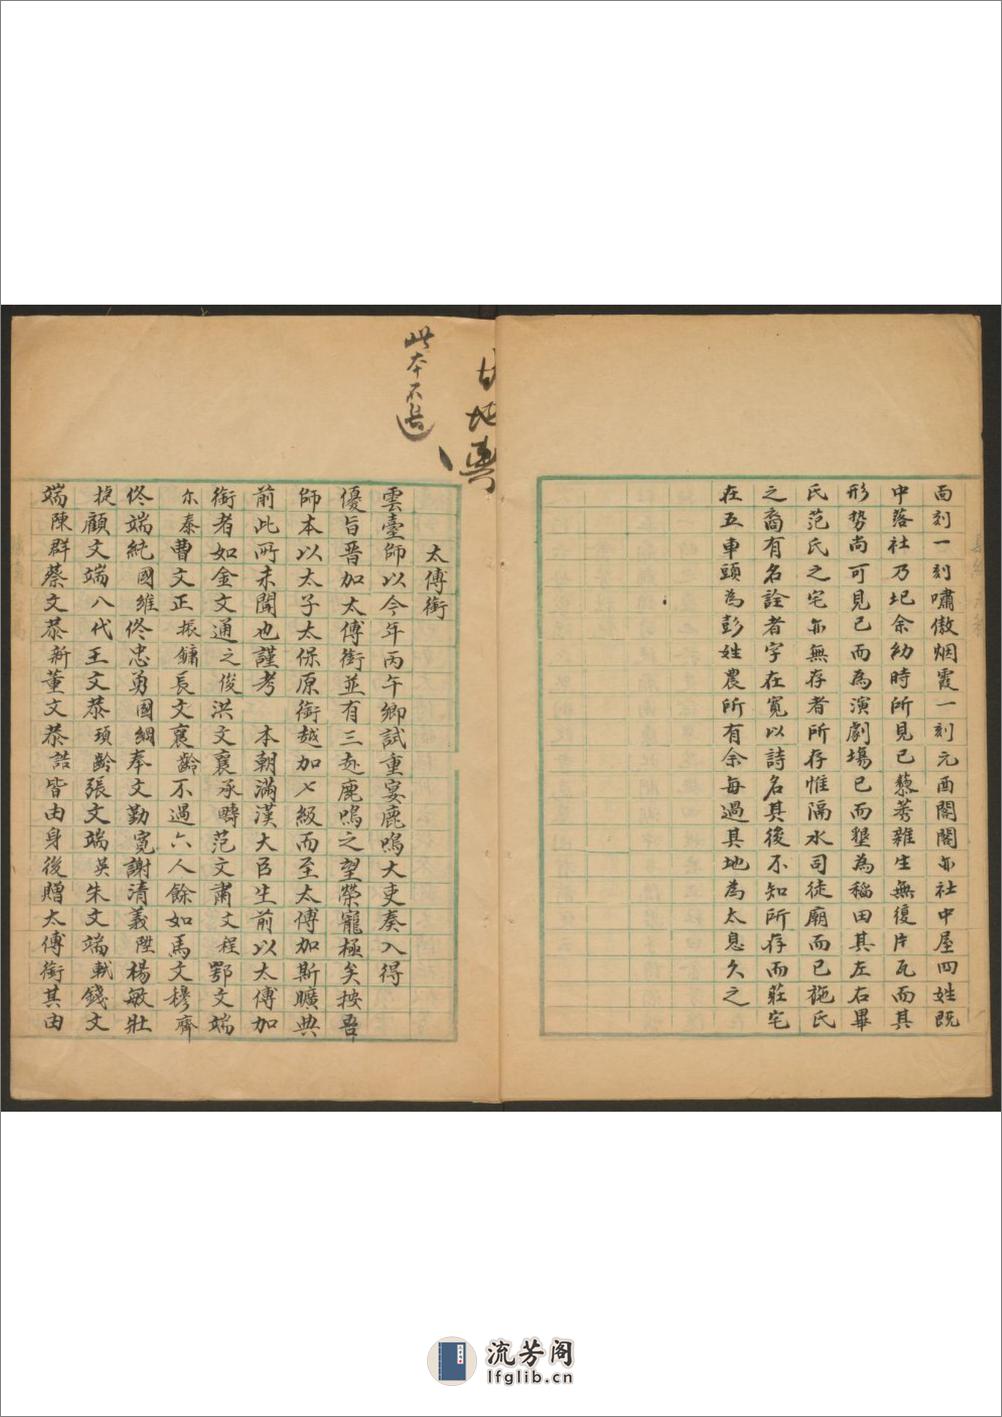 面刻一刻嘯傲烟霞一刻元酉閣閣亦社中屋四姓既
中落社乃圮余幼時所見已藜莠雜生無復片瓦而其
形勢尚可見已而為演劇場已而墾為稲田其左右畢
氏范氏之宅亦無存者所存惟隔水司徒廟而已施氏
之裔有名詮者字在寬以詩名其後不知所存而莊宅
在五車頭為彭姓農所有余每過其地為太息久之
此本不
太傅銜
雲臺師以今年丙午鄉試重宴鹿鳴大吏奏入得
優旨晋加太傅銜並有三赴鹿鳴之望榮寵極矣按吾
師本以太子太保原銜越加七級而至太傅加斯曠典
前此所未聞也謹考 本朝滿漢大臣生前以太傅加
銜者如金文通之俊洪文襄承疇范文肅文程鄂文端
尓泰曹文正振鏞長文襄齡不過六人餘如馬文穆齊
佟端純國維佟忠勇國綱奉文勤寬謝清義陞楊敏壯
捷顧文端八代王文恭頊齡張文端英朱文端軾錢文
端陳群蔡文恭新董文恭誥皆由身後贈太傅銜其由
流芳阁
lfglib.cn